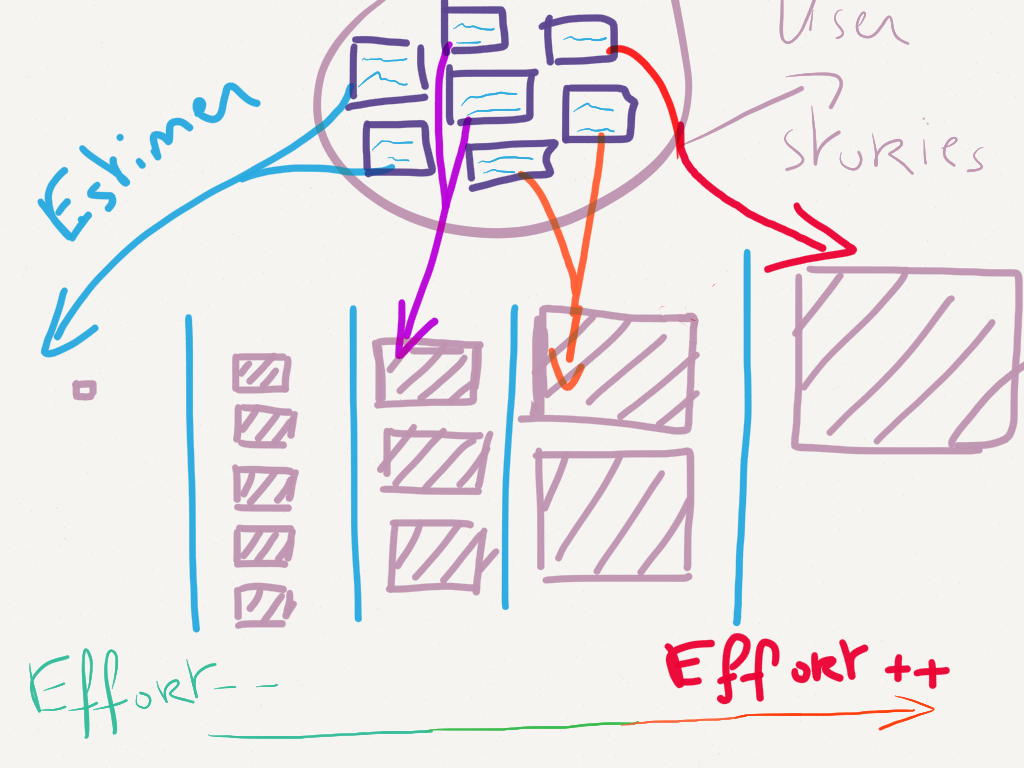 User
stories
Estimer
Effort--
Effort ++